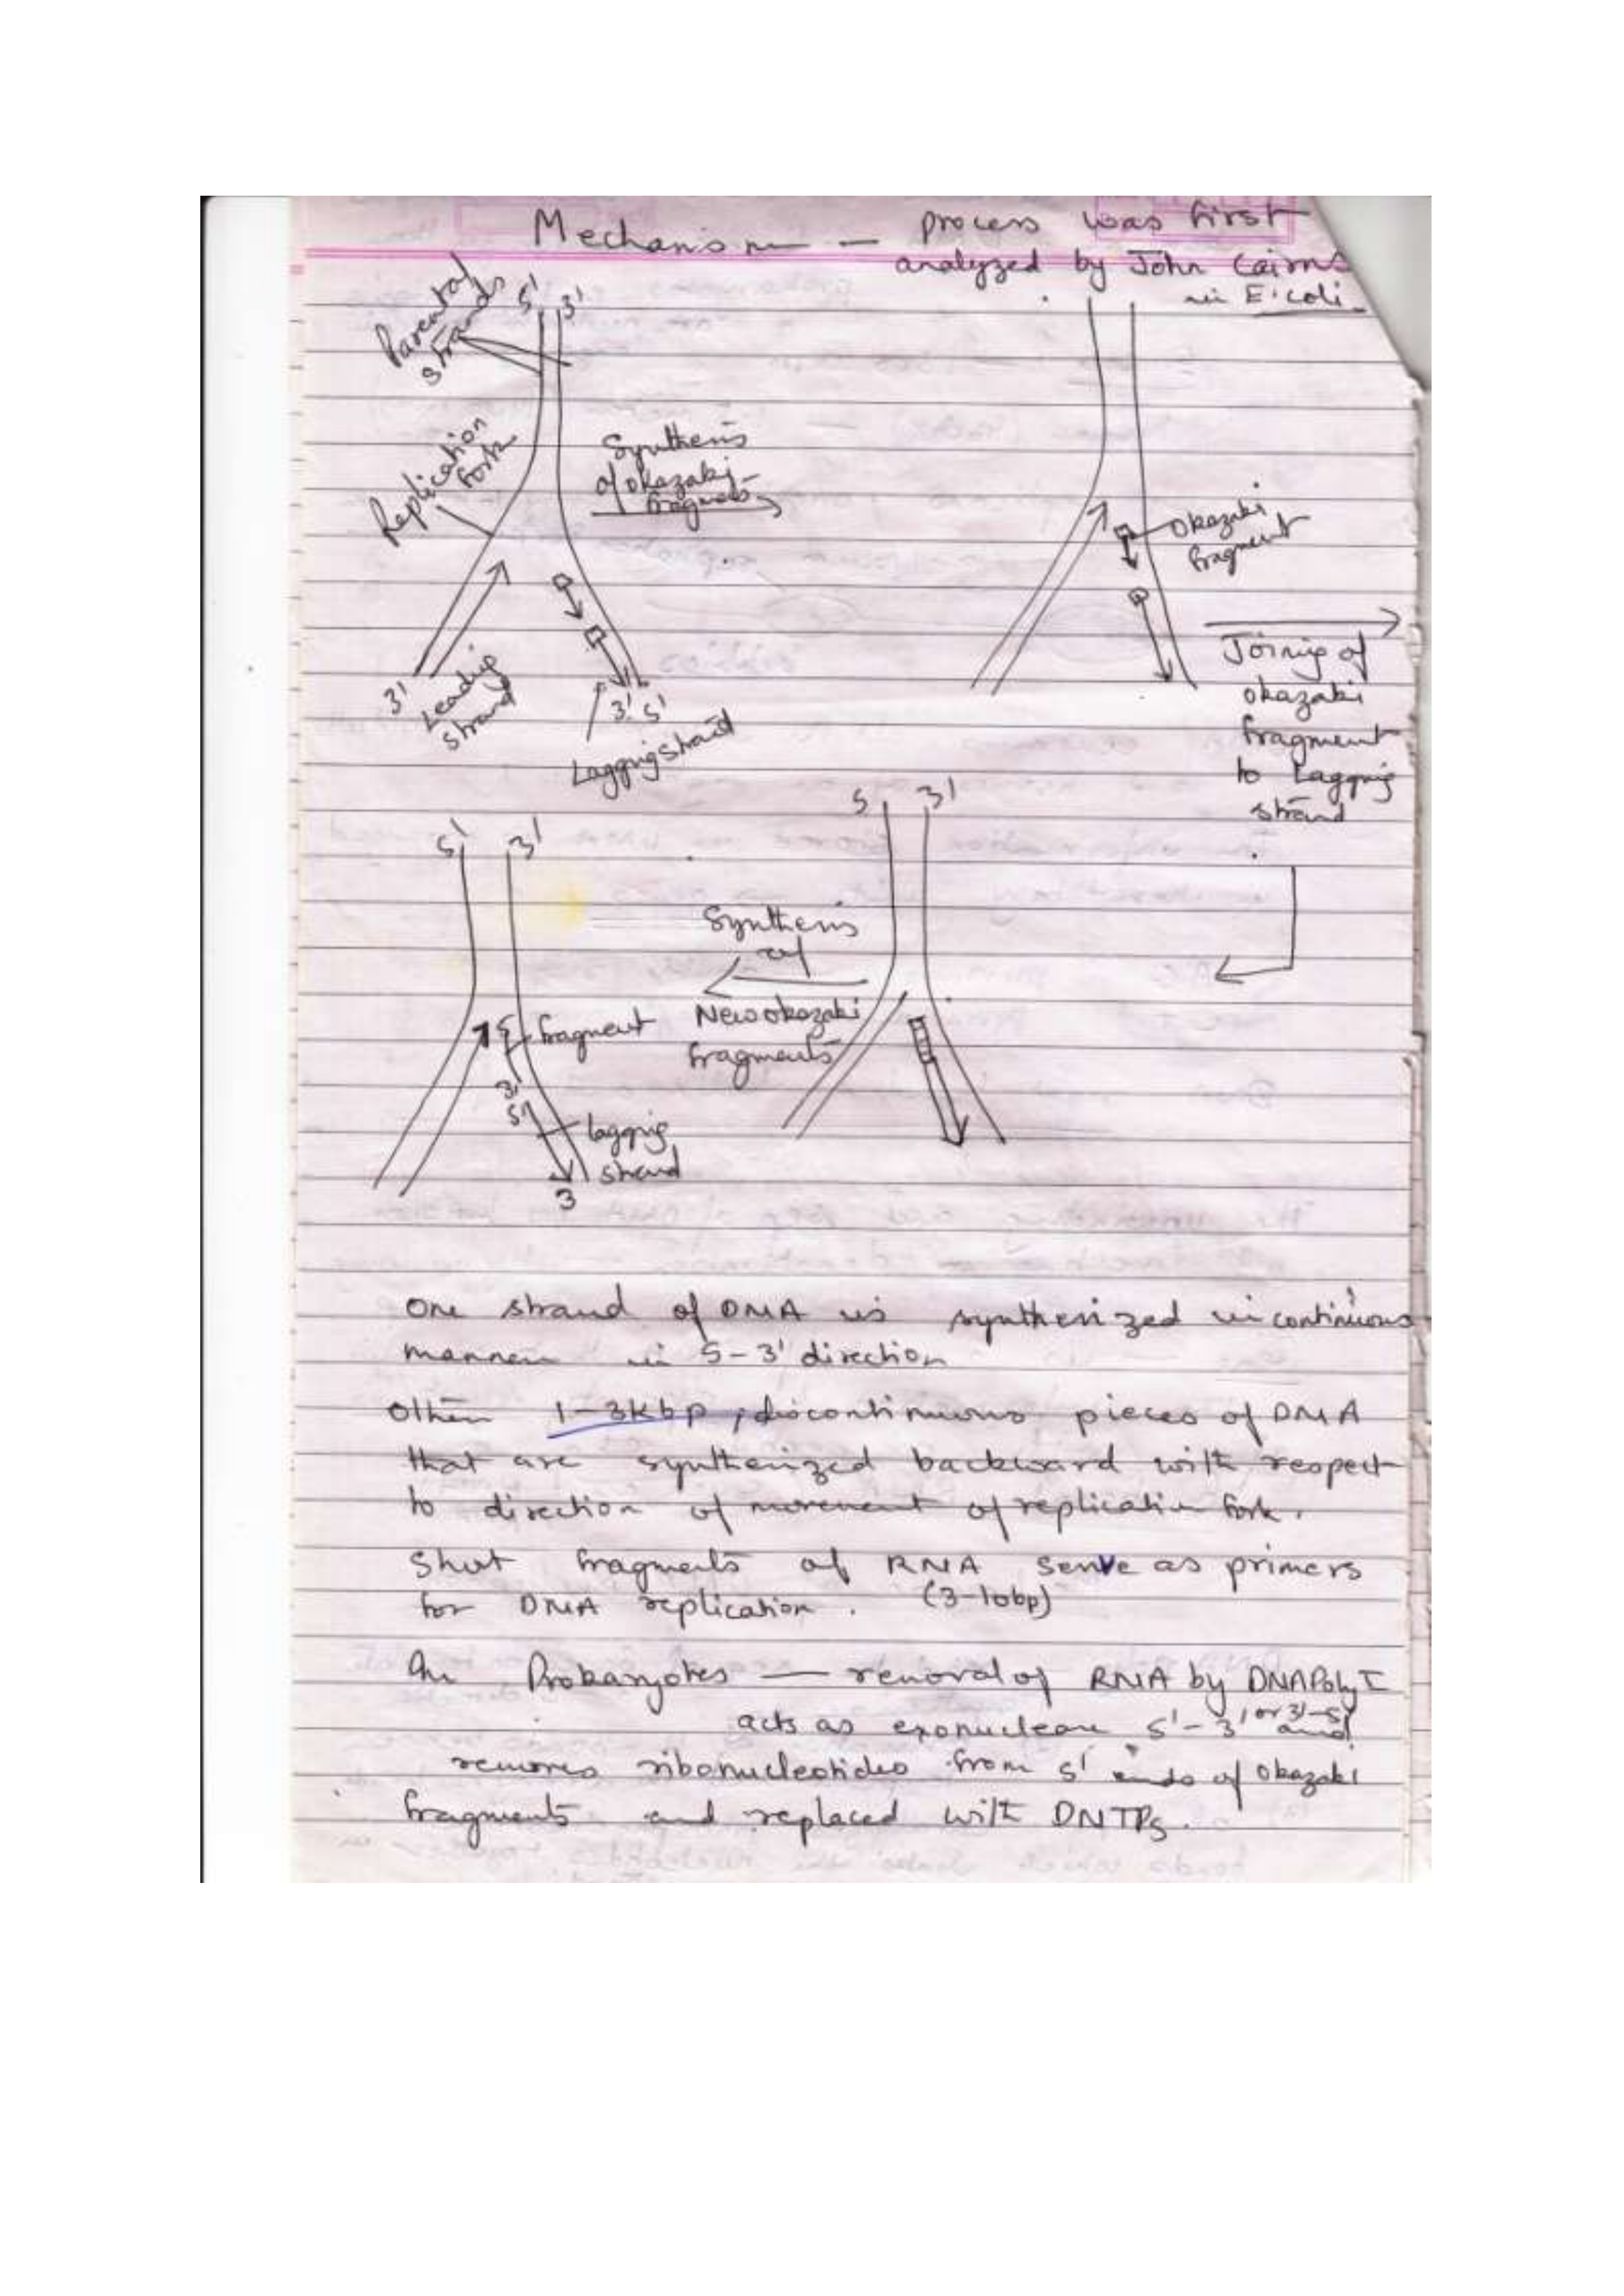 Mechanism — process was first
analyzed by John Cairns
in E.coli
Parental
strands
5' 3'
Replication
fork
Synthesis
of okazaki
fragments
3'
Leading
strand
3' 5'
Lagging strand
Okazaki
fragment
Joining of
okazaki
fragment
to Lagging
strand
5 3'
Synthesis
of
New okazaki
fragments
5' 3'
5
fragment
3'
5'
lagging
strand
3
One strand of DNA is synthesized in continuous
manner in 5-3' direction
Other 1-3Kbp, discontinuous pieces of DNA
that are synthesized backward with respect
to direction of movement of replication fork.
Short fragments of RNA serve as primers
for DNA replication. (3-10bp)
In Prokaryotes — removal of RNA by DNAPoly I
acts as exonuclease 5'-3' or 3'-5' and
removes ribonucleotides from 5' ends of Okazaki
fragments and replaced with DNTPs.